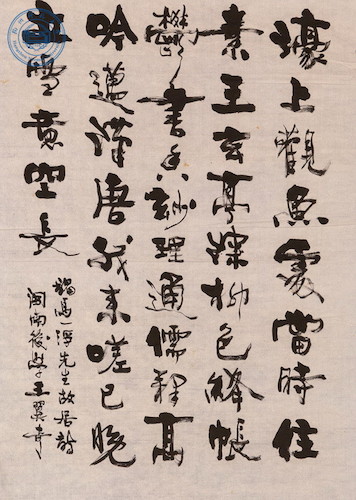 濠上觀魚處當時住
素王玄亭深柳色絳帳
鬱書香妙理通儒釋高
吟邁漢唐我來嗟已晚
立雪意空長
謁馬一浮先生故居詩
閩南後學王翼奇